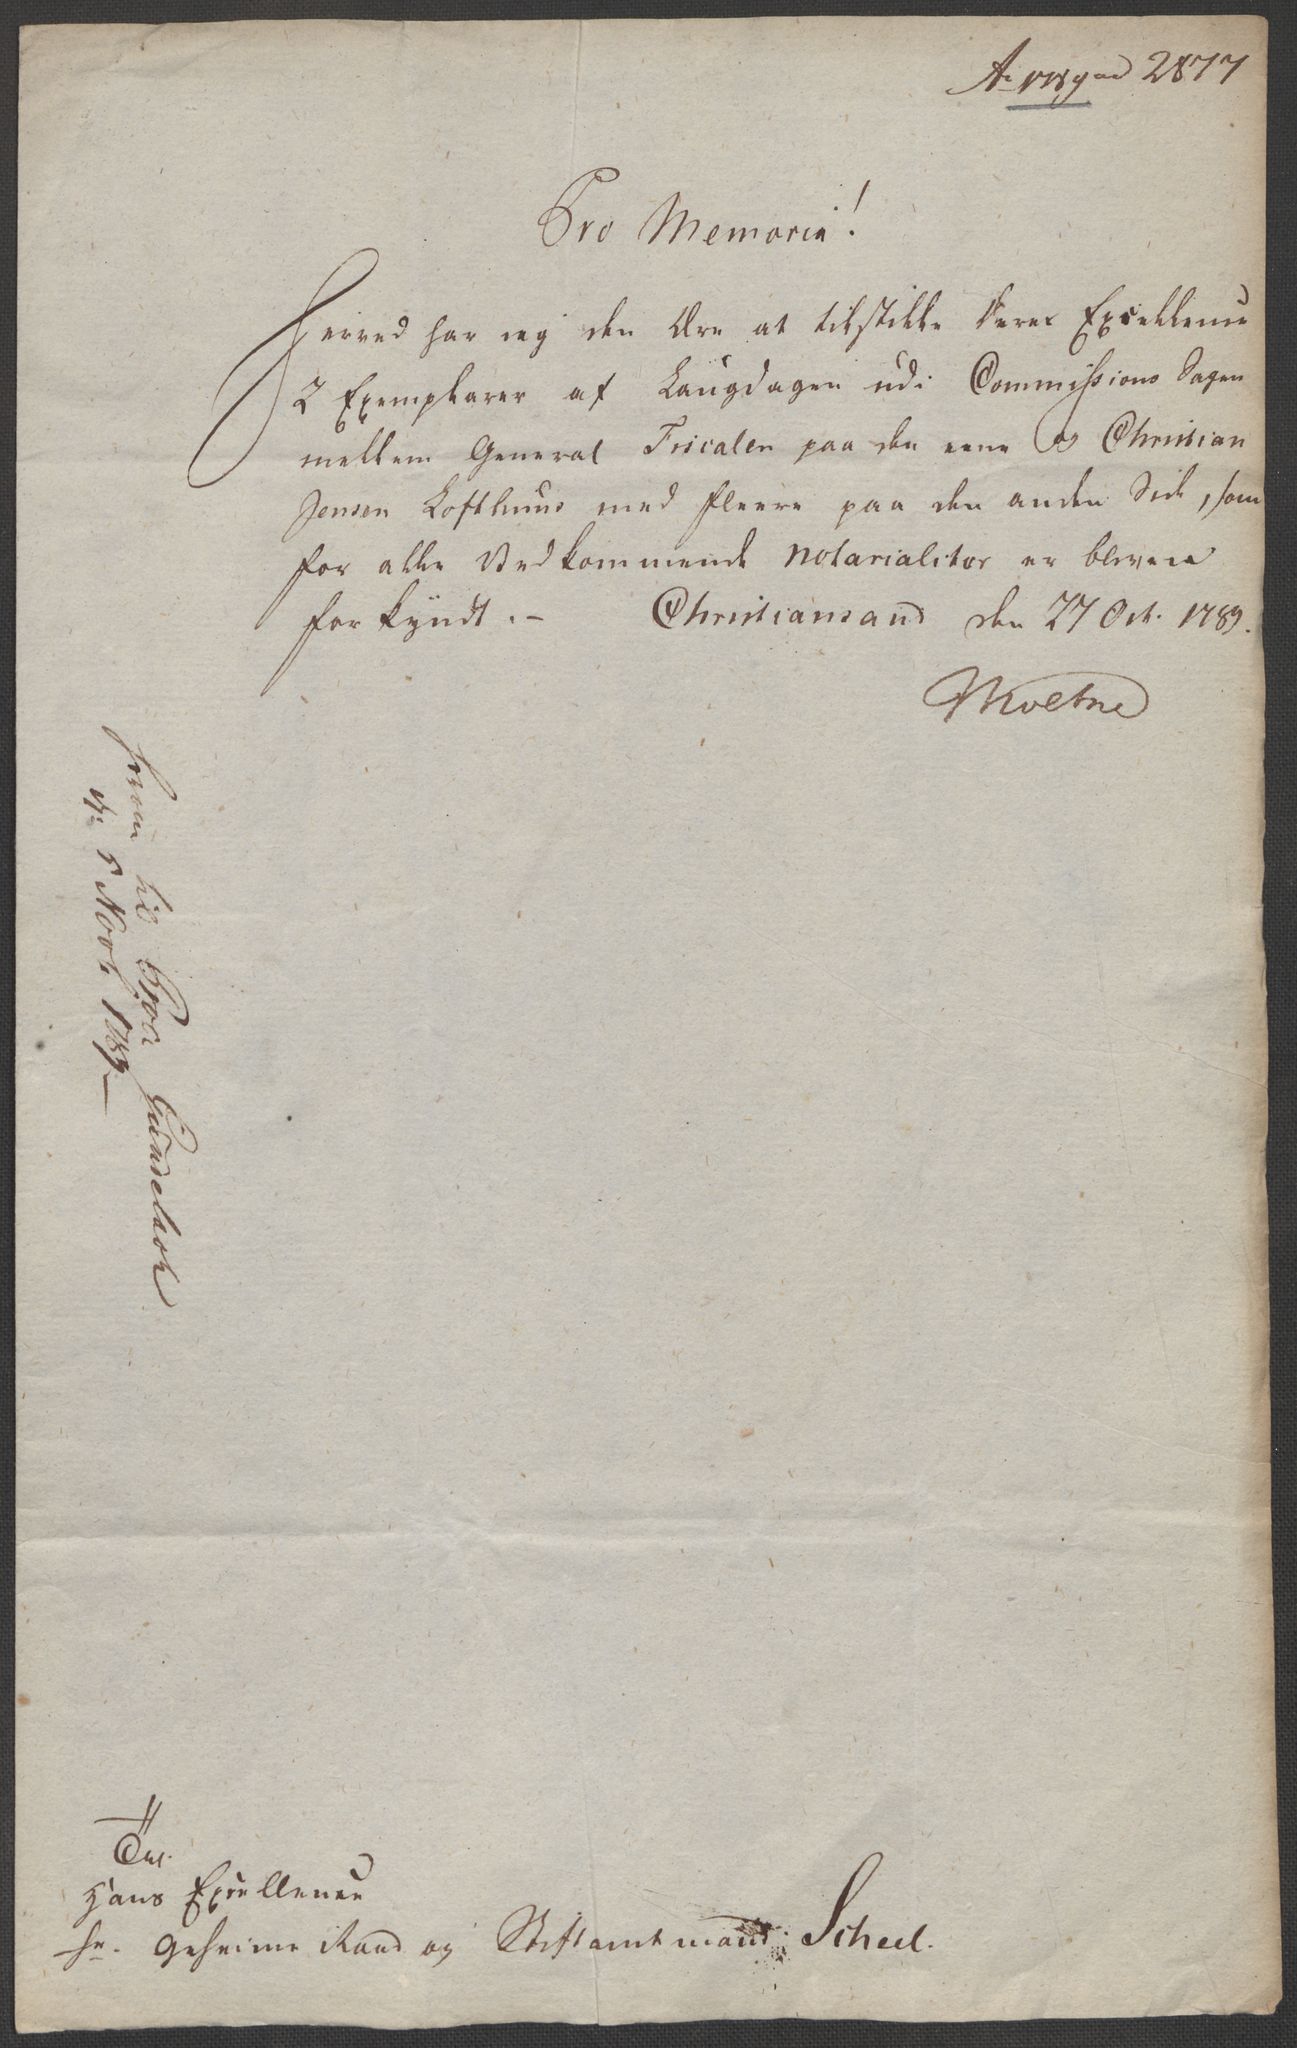 2877
Pro Memoria!
Herved har jeg den Ære at tilstille Deres Excellence
2 Exemplarer af Laugdagen udi Commissions Sagen
mellem General Fiscalen paa den eene og Christian
Jensen Lofthuus med fleere paa den anden Side, som
for alle Vedkommende notarialiter er bleven
forkyndt. – Christiansand den 27 Oct. 1789.
til Gundelach
5 Nov. 1789 –
Til
Hans Excellence
Hr. Geheime Raad og Stiftamtmand Scheel.